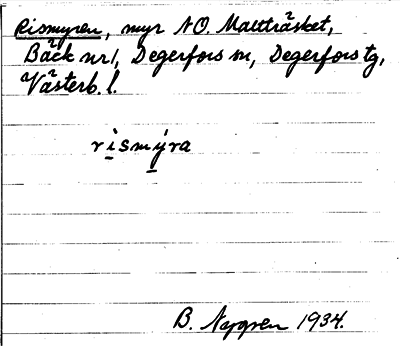 Rismyren, myr NO. Malträsket,
Bäck nr 1, Degerfors sn, Degerfors tg,
Västerb. l.
rismýra
B. Nygren 1934.